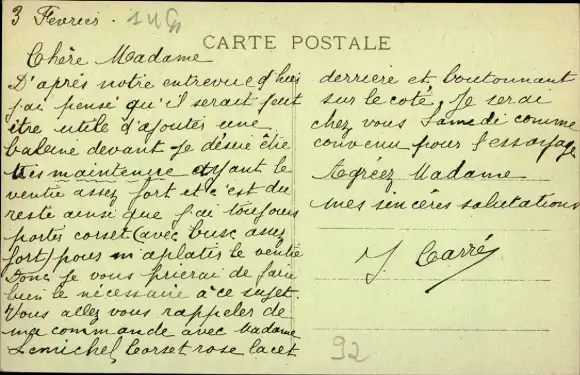 3 Février.
CARTE POSTALE
Chère Madame
D'après notre entrevue d'hier
j'ai pensé qu'il serait peut
être utile d'ajouter une
baleine devant je désire être
très maintenue ayant le
ventre assez fort et c'est du
reste ainsi que j'ai toujours
portés corset (avec busc assez
fort) pour m'aplatir le ventre
Donc je vous prierai de faire
bien le nécessaire à ce sujet.
Vous allez vous rappeler de
ma commande avec Madame
Lemichel, Corset rose lacet
derrière et boutonnant
sur le coté, Je serai
chez vous Samedi comme
convenu pour l'essayage
Agréez Madame
mes sincères salutations
J. Carré
92